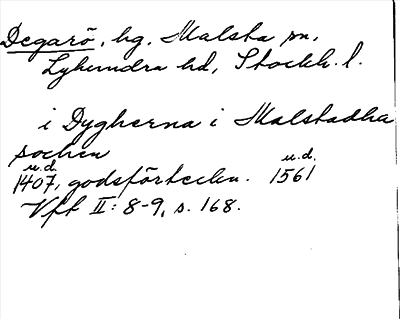 Degarö, hg, Malsta sn,
Lyhundra hd, Stockh. l.
i Dygherna i Malstadha
sochen
u.d. u.d.
1407, godsförteckn. 1561
Vft II: 8-9, s. 168.